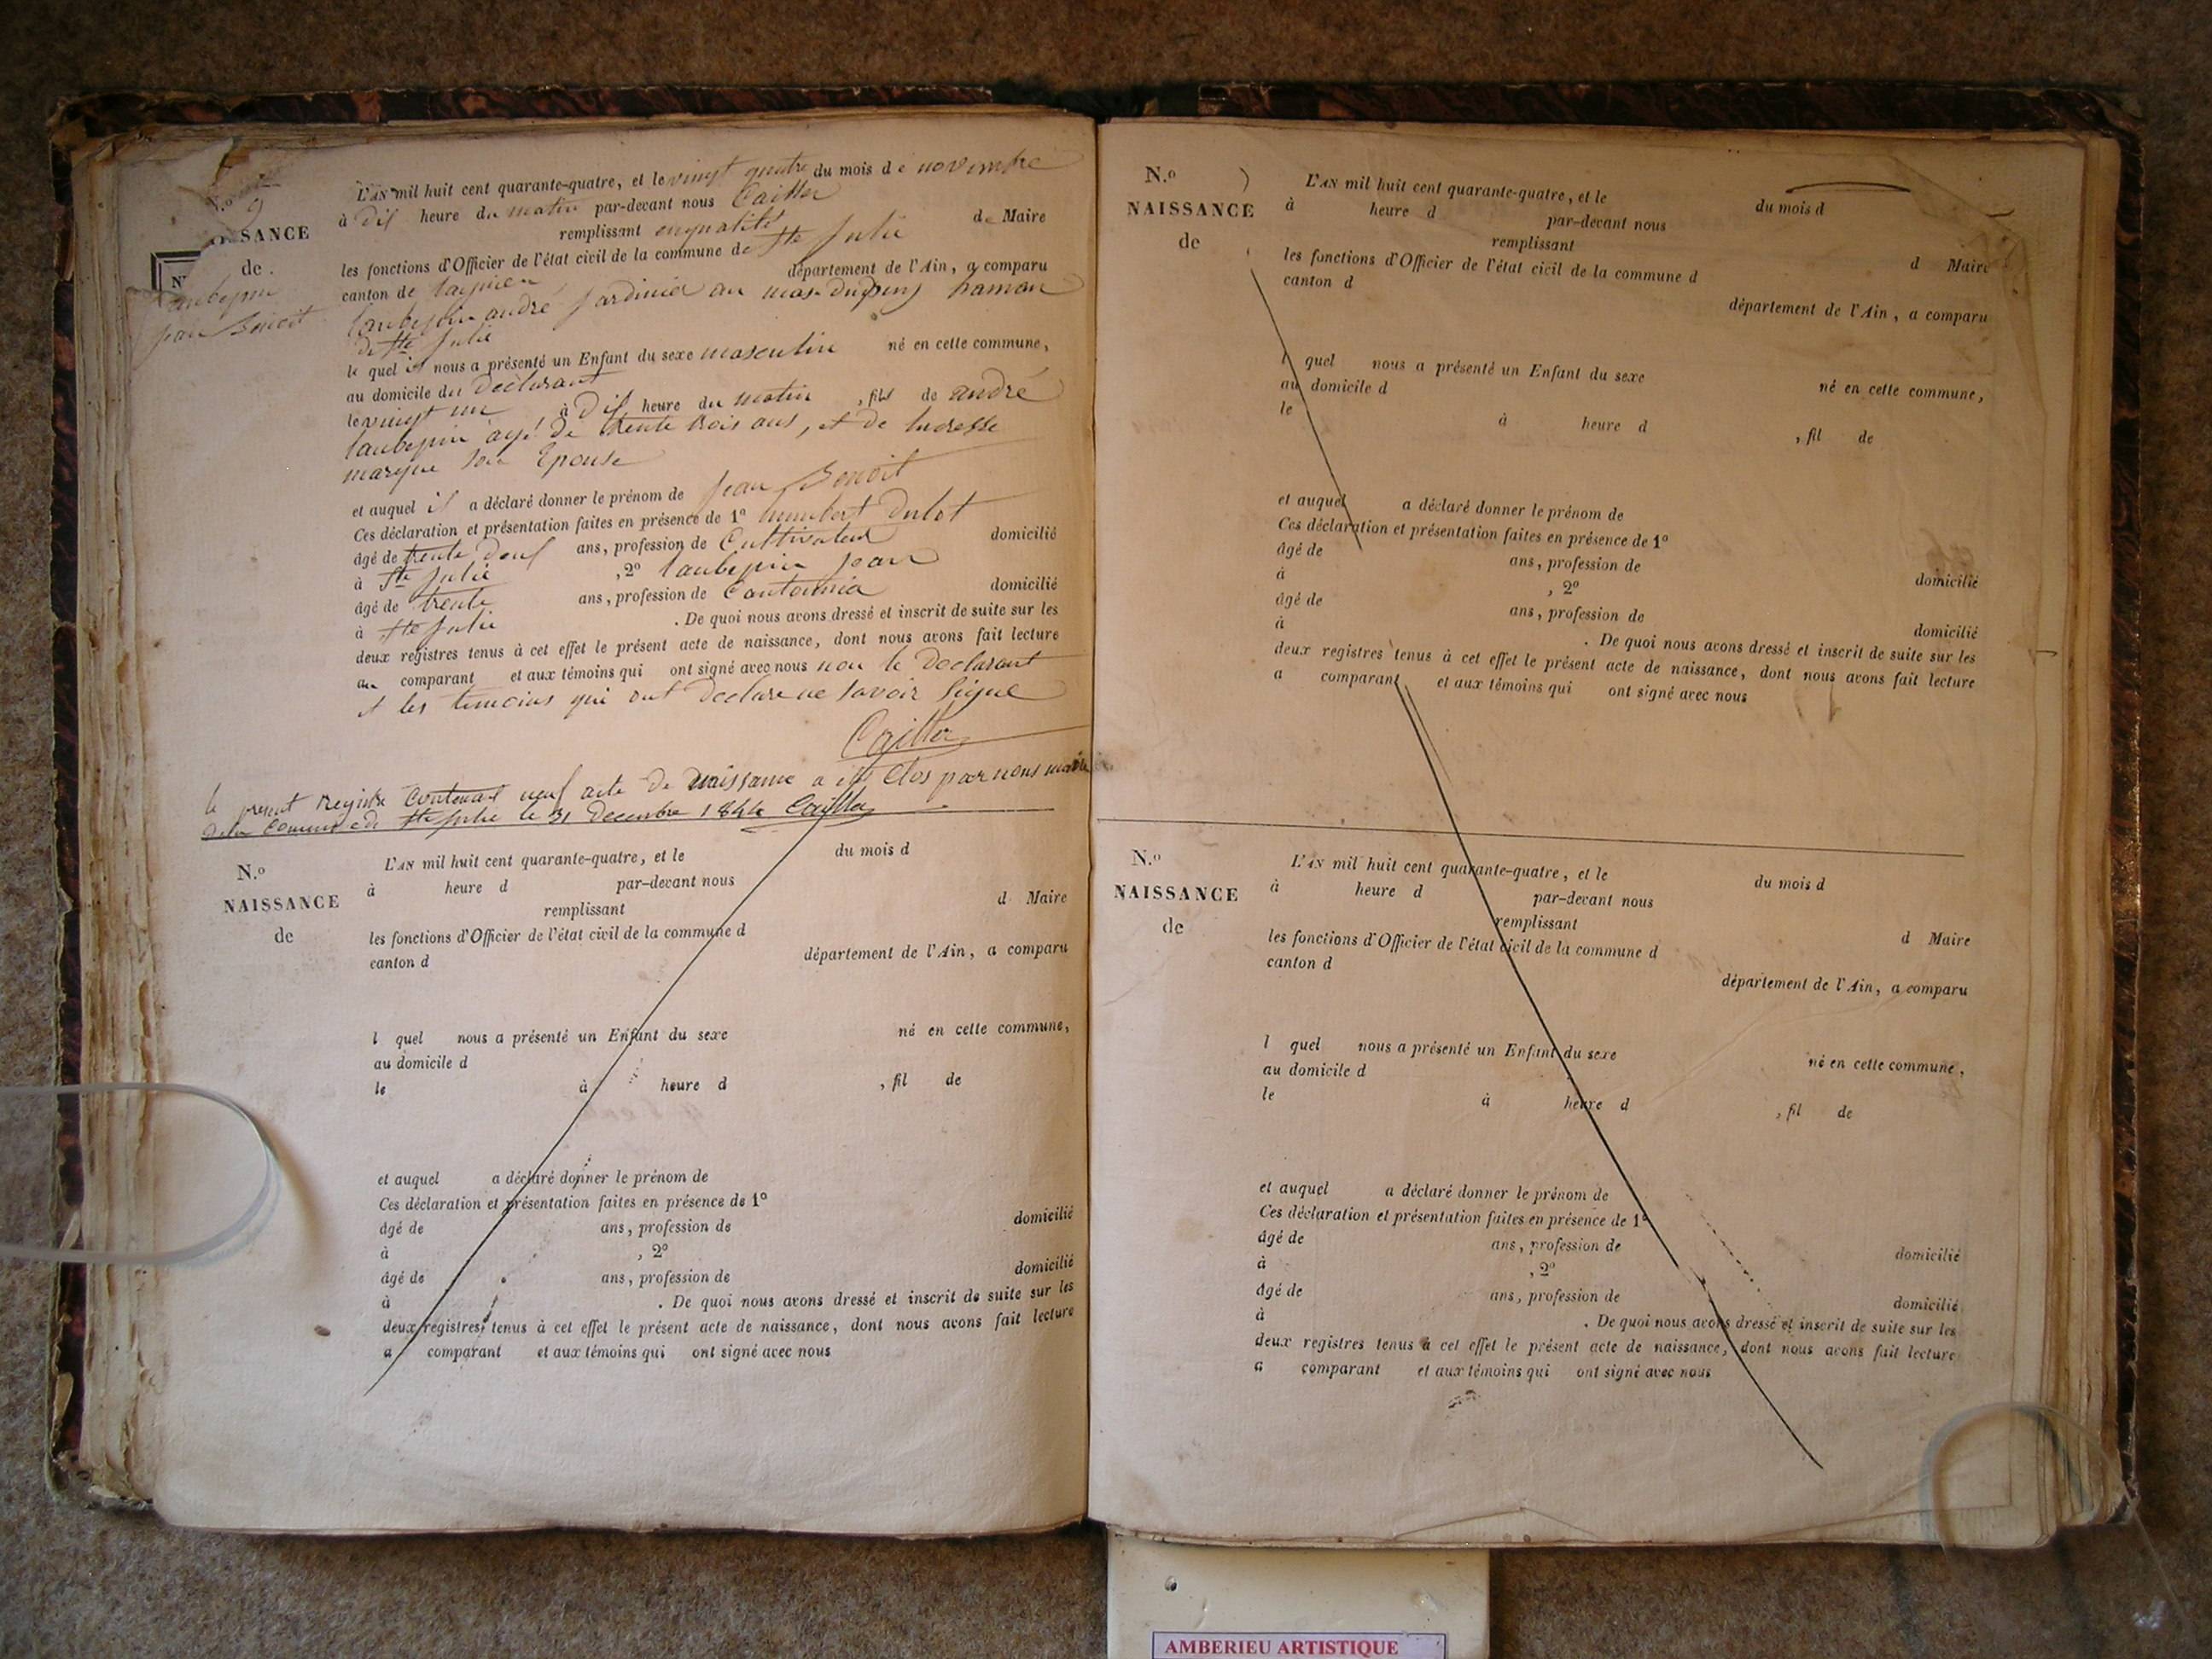 N.o
9
SANCE
de
N
laubepin
jean Benoit
L'AN mil huit cent quarante-quatre, et le vingt quatre du mois de novembre
à dix heure du matin par-devant nous Caillor
remplissant en qualité de Maire
les fonctions d'Officier de l'état civil de la commune de Ste Julie
canton de lagnieu département de l'Ain, a comparu
laubepin andré jardinier au hamau
de Ste Julie
le quel il nous a présenté un Enfant du sexe masculin né en cette commune,
au domicile du Déclarant
le vingt un à dix heure du matin, fils de andré
laubepin agé de trente trois ans, et de lucresse
son Epouse
et auquel il a déclaré donner le prénom de jean Benoit
Ces déclaration et présentation faites en présence de 1º humbert
âgé de trente deux ans, profession de Cultivateur domicilié
à Ste Julie, 2º laubepin jean
âgé de trente ans, profession de domicilié
à Ste Julie. De quoi nous avons dressé et inscrit de suite sur les
deux registres tenus à cet effet le présent acte de naissance, dont nous avons fait lecture
au comparant et aux témoins qui ont signé avec nous non le Declarant
et les temoins qui ont Declare ne savoir signé
le present registre Contenant neuf acte de naissance a été Clos par nous maire
de la Commune de Ste Julie le 31 Decembre 1844
N.o
NAISSANCE
de
L'AN mil huit cent quarante-quatre, et le du mois d
à heure d par-devant nous
remplissant d Maire
les fonctions d'Officier de l'état civil de la commune d
canton d département de l'Ain, a comparu
l quel nous a présenté un Enfant du sexe né en cette commune,
au domicile d
le à heure d , fil de
et auquel a déclaré donner le prénom de
Ces déclaration et présentation faites en présence de 1º
âgé de ans, profession de domicilié
à , 2º
âgé de ans, profession de domicilié
à . De quoi nous avons dressé et inscrit de suite sur les
deux registres tenus à cet effet le présent acte de naissance, dont nous avons fait lecture
a comparant et aux témoins qui ont signé avec nous
N.o
NAISSANCE
de
L'AN mil huit cent quarante-quatre, et le du mois d
à heure d par-devant nous
remplissant d Maire
les fonctions d'Officier de l'état civil de la commune d
canton d département de l'Ain, a comparu
l quel nous a présenté un Enfant du sexe né en cette commune,
au domicile d
le à heure d , fil de
et auquel a déclaré donner le prénom de
Ces déclaration et présentation faites en présence de 1º
âgé de ans, profession de domicilié
à , 2º
âgé de ans, profession de domicilié
à . De quoi nous avons dressé et inscrit de suite sur les
deux registres tenus à cet effet le présent acte de naissance, dont nous avons fait lecture
a comparant et aux témoins qui ont signé avec nous
N.o
NAISSANCE
de
L'AN mil huit cent quarante-quatre, et le du mois d
à heure d par-devant nous
remplissant d Maire
les fonctions d'Officier de l'état civil de la commune d
canton d département de l'Ain, a comparu
l quel nous a présenté un Enfant du sexe né en cette commune,
au domicile d
le à heure d , fil de
et auquel a déclaré donner le prénom de
Ces déclaration et présentation faites en présence de 1º
âgé de ans, profession de domicilié
à , 2º
âgé de ans, profession de domicilié
à . De quoi nous avons dressé et inscrit de suite sur les
deux registres tenus à cet effet le présent acte de naissance, dont nous avons fait lecture
a comparant et aux témoins qui ont signé avec nous
AMBERIEU ARTISTIQUE